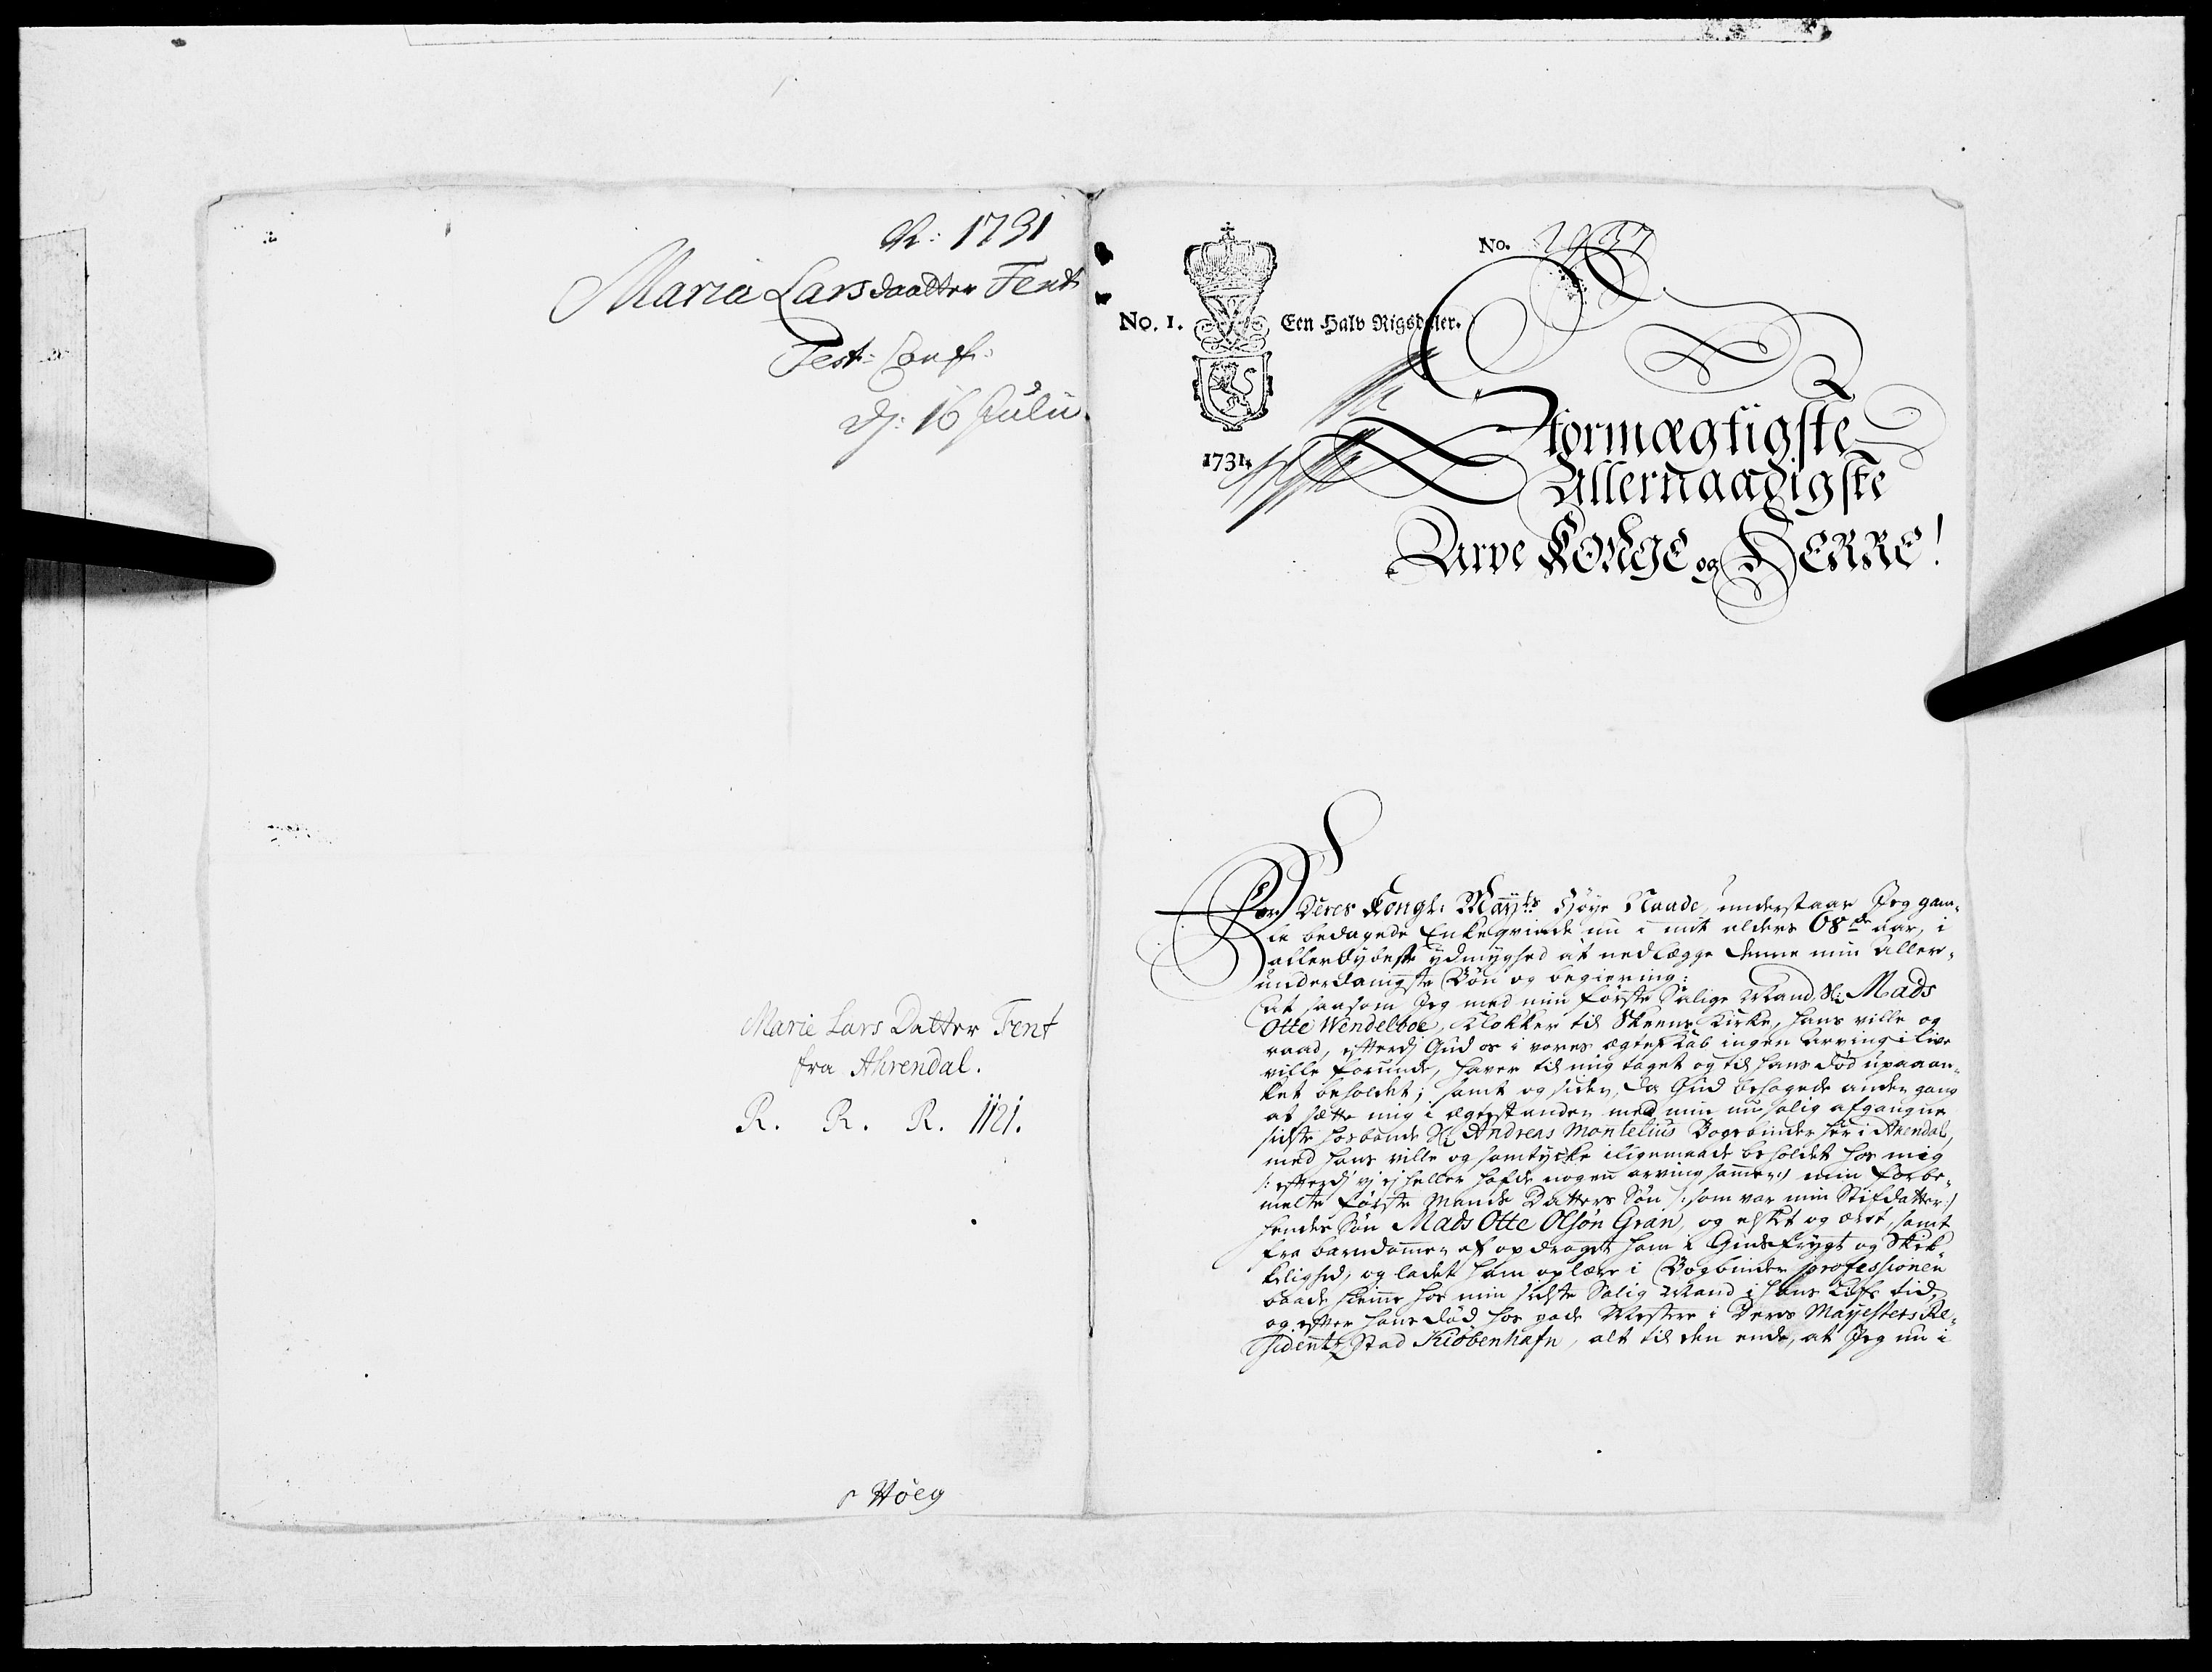 N: 1731
Maria Larsdaatter Fent
Test: Conf:
D: 16 Julii
Marie Lars Datter Fent
fra Ahrendal.
R. R. R. 1121.
Höeg
No.
No. 1.
Een Halv Rigsdaler.
1731.
Stormægtigste
Allernaadigste
Arve KONGE og HERRE!
For Deres Kongl: Mayts Høye Naade, understaar Jeg gam-
le bedagede Enkeqvinde nu i mit alders 68de aar, i
allerdybeste ydmyghed at nedlægge denne min Aller-
underdanigste Bøn og begiering:
at saasom Jeg med min første Salige Mand, Sl: Mads
Otte Wendelboe, Klokker til Skeens Kirke, hans villie og
raad, efterdj Gud os i vores ægteskab ingen arving i live
ville forunde, haver til mig taget og til hans død upaaan-
ket beholdet; samt og siden, da Gud behagede anden gang
at sætte mig i ægtestanden med min nu salig afgangne
sidste hosbonde Sl: Andreas Montelius Bogbinder her i Arendal,
med hans villie og samtycke i lige maade beholdet hos mig
/: efterdj vj ej heller hafde nogen arving sammen :/ min forbe-
melte første Mands Datters Søn /: som var min Stifdatter :/
hendes Søn Mads Otte Olsøn Gran, og elsket og æret, samt
fra barndommen af opdraget ham i Gudsfrygt og Skik-
kelighed, og ladet ham oplære i Bogbinder professionen
baade hiemme hos min sidste Salig Mand i hans Lifs tid,
og efter hans død hos gode Mestere i Deres Mayestets Re-
sidentz Stad Kiöbenhafn, alt til den ende, at Jeg nu i